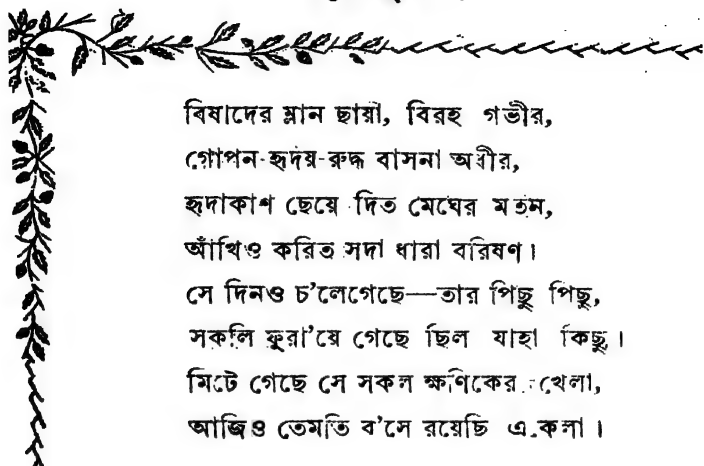 বিষাদের ম্লান ছায়া, বিরহ গভীর,
গোপন-হৃদয়-রুদ্ধ বাসনা অধীর,
হৃদাকাশ ছেয়ে দিত মেঘের মতন,
আঁখিও করিত সদা ধারা বরিষণ।
সে দিনও চ'লেগেছে—তার পিছু পিছু,
সকলি ফুরা'য়ে গেছে ছিল যাহা কিছু।
মিটে গেছে সে সকল ক্ষণিকের খেলা,
আজিও তেমতি ব'সে রয়েছি একলা।